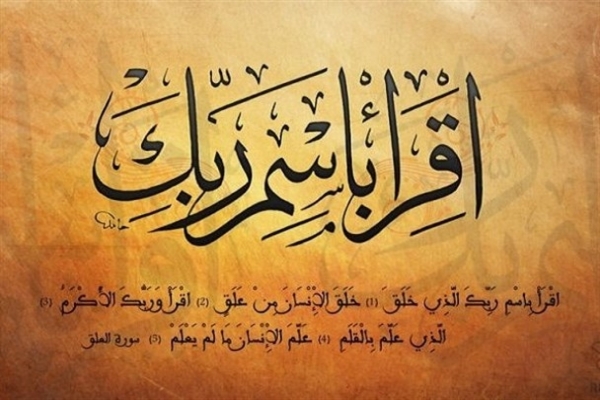 اقْرَأْ بِاسْمِ رَبِّكَ
اقْرَأْ بِاسْمِ رَبِّكَ الَّذِي خَلَقَ (1) خَلَقَ الْإِنْسَانَ مِنْ عَلَقٍ (2) اقْرَأْ وَرَبُّكَ الْأَكْرَمُ (3)
الَّذِي عَلَّمَ بِالْقَلَمِ (4) عَلَّمَ الْإِنْسَانَ مَا لَمْ يَعْلَمْ (5) سورة العلق